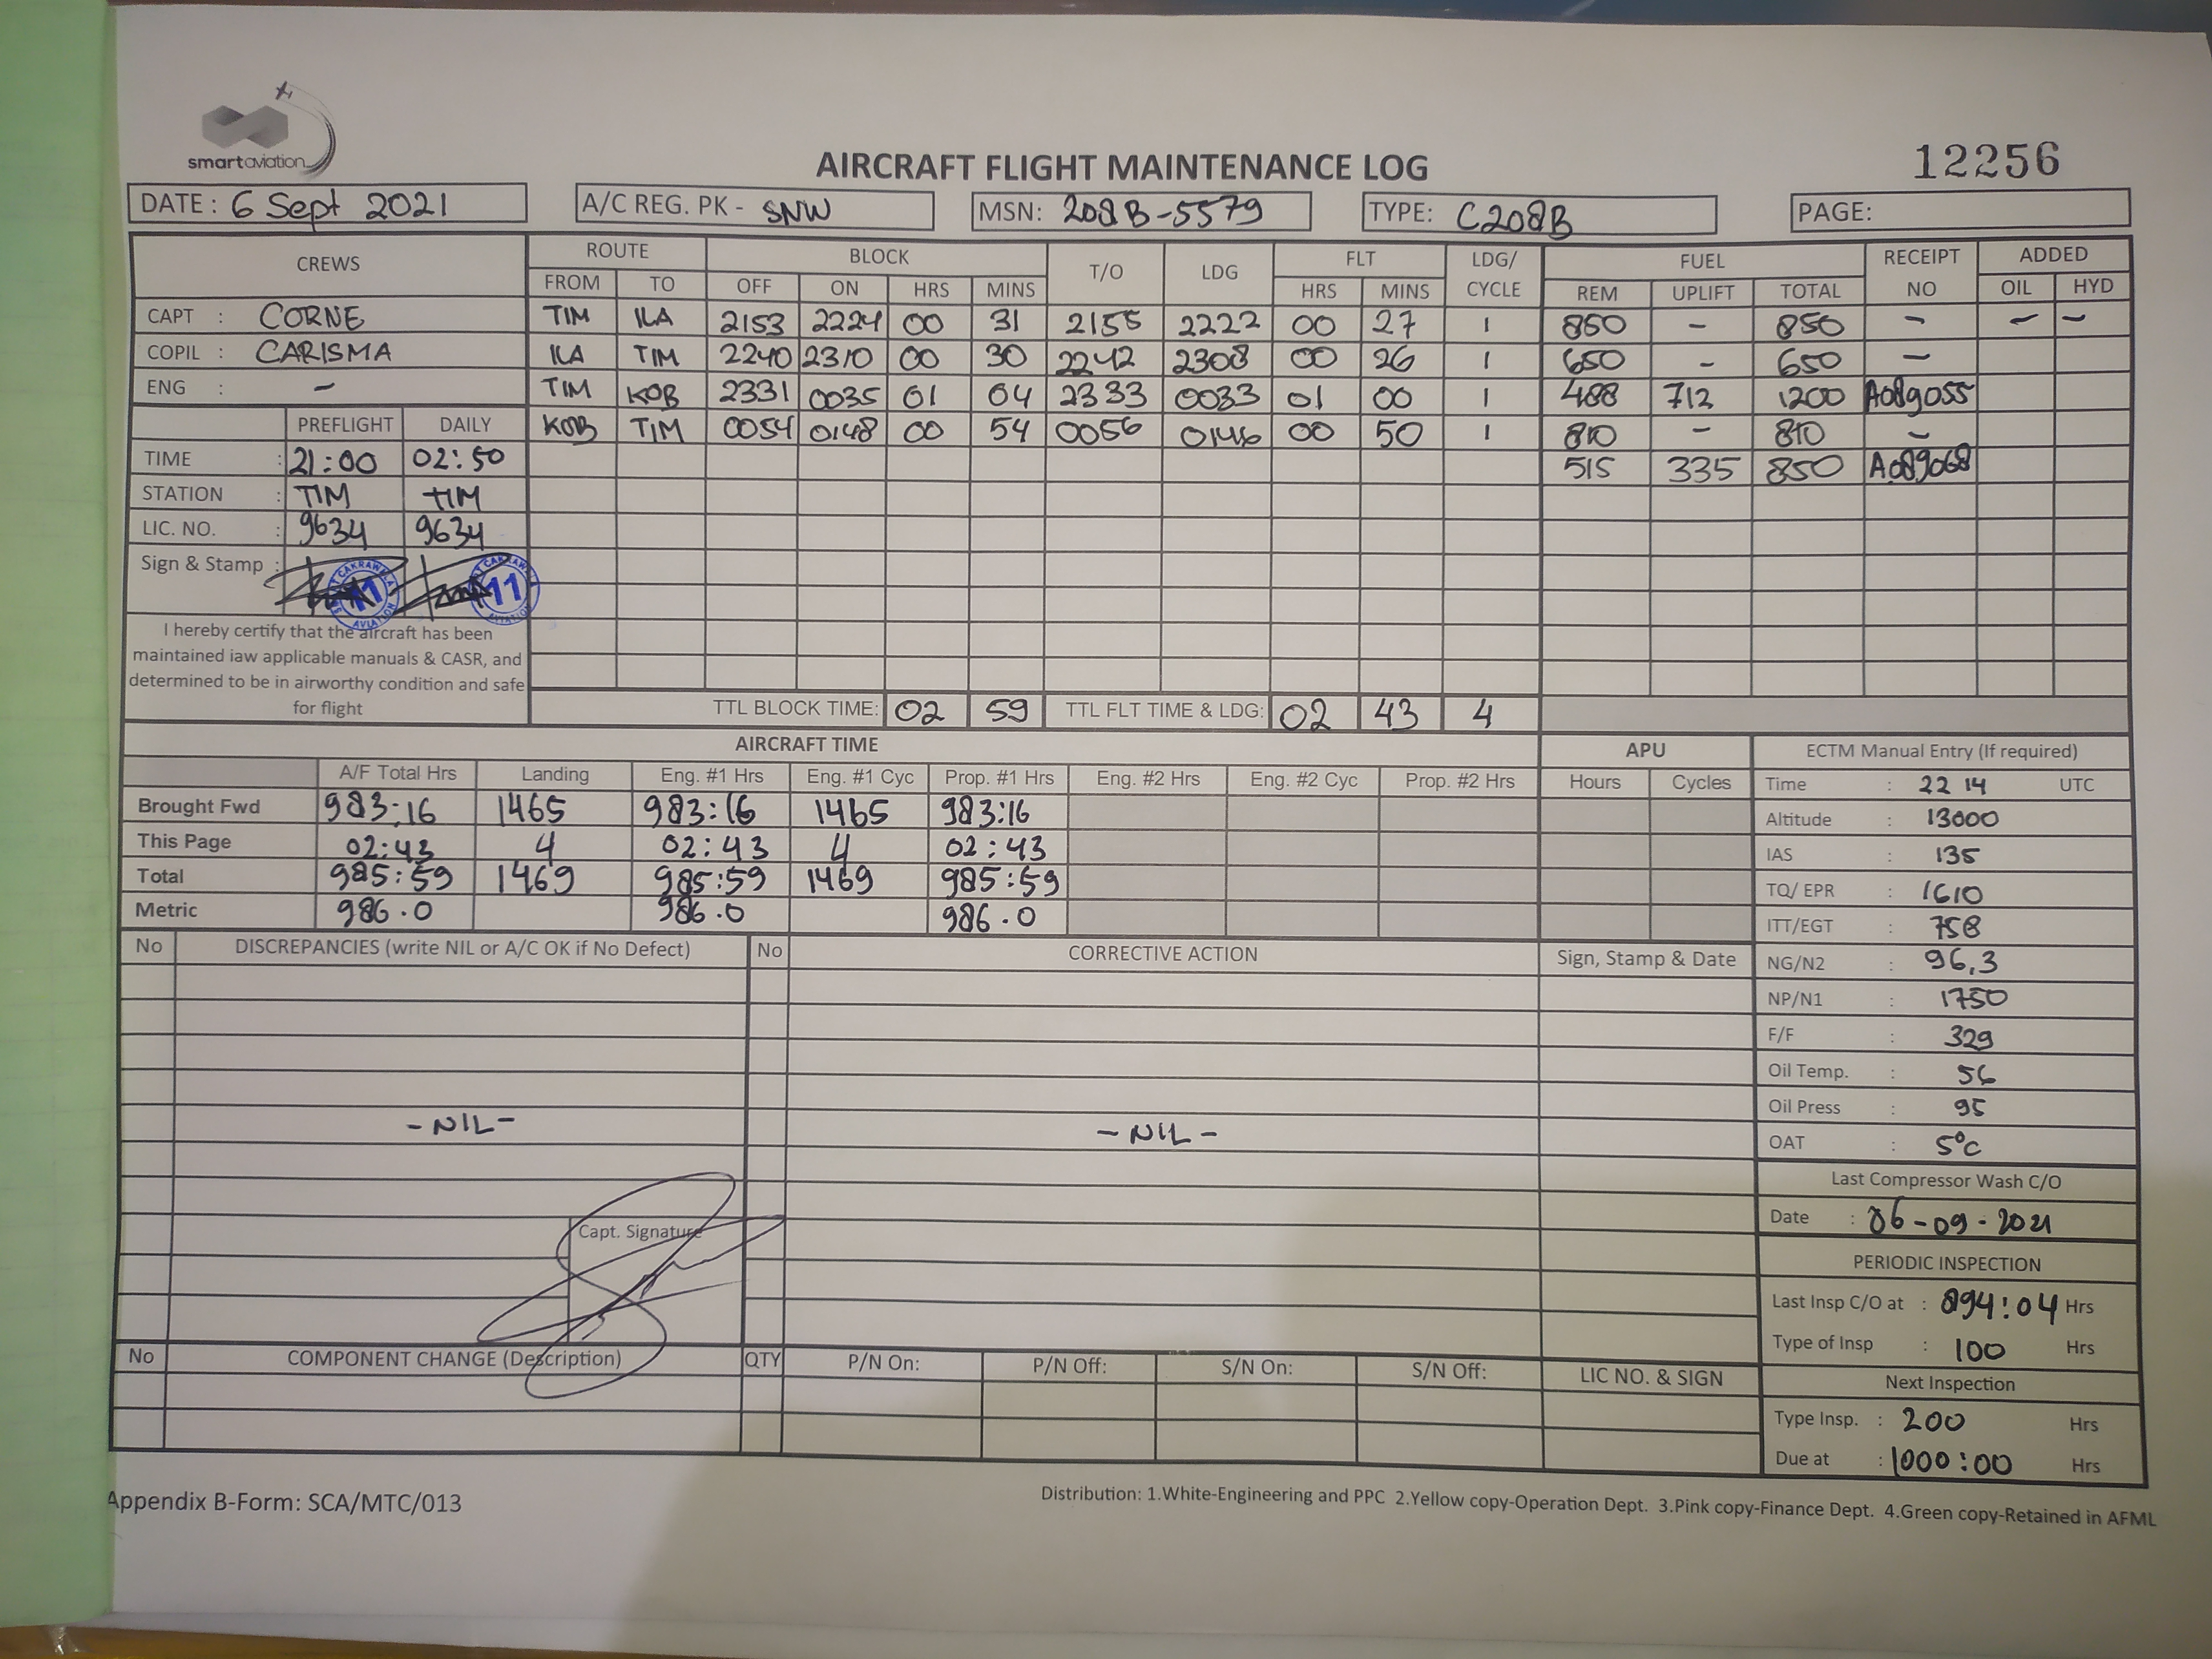 smart aviation
AIRCRAFT FLIGHT MAINTENANCE LOG
12256
DATE : 6 Sept 2021
A/C REG. PK - SNW
MSN: 208B-5579
TYPE: C208B
PAGE:
CREWS ROUTE BLOCK T/O LDG FLT LDG/ CYCLE FUEL RECEIPT NO ADDED
FROM TO OFF ON HRS MINS HRS MINS REM UPLIFT TOTAL OIL HYD
CAPT : CORNE TIM ILA 2153 2224 00 31 2155 2222 00 27 1 850 - 850 - - -
COPIL : CARISMA ILA TIM 2240 2310 00 30 2242 2308 00 26 1 650 - 650 -
ENG : - TIM KOB 2331 0035 01 04 2333 0033 01 00 1 488 712 1200 A089055
PREFLIGHT DAILY KOB TIM 0054 0148 00 54 0056 0146 00 50 1 810 - 810 -
TIME : 21:00 02:50 515 335 850 A089068
STATION : TIM TIM
LIC. NO. : 9634 9634
Sign & Stamp :
CAKRAWALA 11 AVIATION
CAKRAWALA 11 AVIATION
I hereby certify that the aircraft has been
maintained iaw applicable manuals & CASR, and
determined to be in airworthy condition and safe
for flight
TTL BLOCK TIME: 02 59 TTL FLT TIME & LDG: 02 43 4
AIRCRAFT TIME
A/F Total Hrs Landing Eng. #1 Hrs Eng. #1 Cyc Prop. #1 Hrs Eng. #2 Hrs Eng. #2 Cyc Prop. #2 Hrs
Brought Fwd 983:16 1465 983:16 1465 983:16
This Page 02:43 4 02:43 4 02:43
Total 985:59 1469 985:59 1469 985:59
Metric 986.0 986.0 986.0
APU
Hours Cycles
ECTM Manual Entry (If required)
Time : 22 14 UTC
Altitude : 13000
IAS : 135
TQ/ EPR : 1610
ITT/EGT : 758
NG/N2 : 96,3
NP/N1 : 1750
F/F : 329
Oil Temp. : 56
Oil Press : 95
OAT : 5°C
Last Compressor Wash C/O
Date : 06-09-2021
PERIODIC INSPECTION
Last Insp C/O at : 894:04 Hrs
Type of Insp : 100 Hrs
Next Inspection
Type Insp. : 200 Hrs
Due at : 1000:00 Hrs
No DISCREPANCIES (write NIL or A/C OK if No Defect) No CORRECTIVE ACTION Sign, Stamp & Date
- NIL - - NIL -
Capt. Signature
No COMPONENT CHANGE (Description) QTY P/N On: P/N Off: S/N On: S/N Off: LIC NO. & SIGN
Appendix B-Form: SCA/MTC/013
Distribution: 1.White-Engineering and PPC 2.Yellow copy-Operation Dept. 3.Pink copy-Finance Dept. 4.Green copy-Retained in AFML